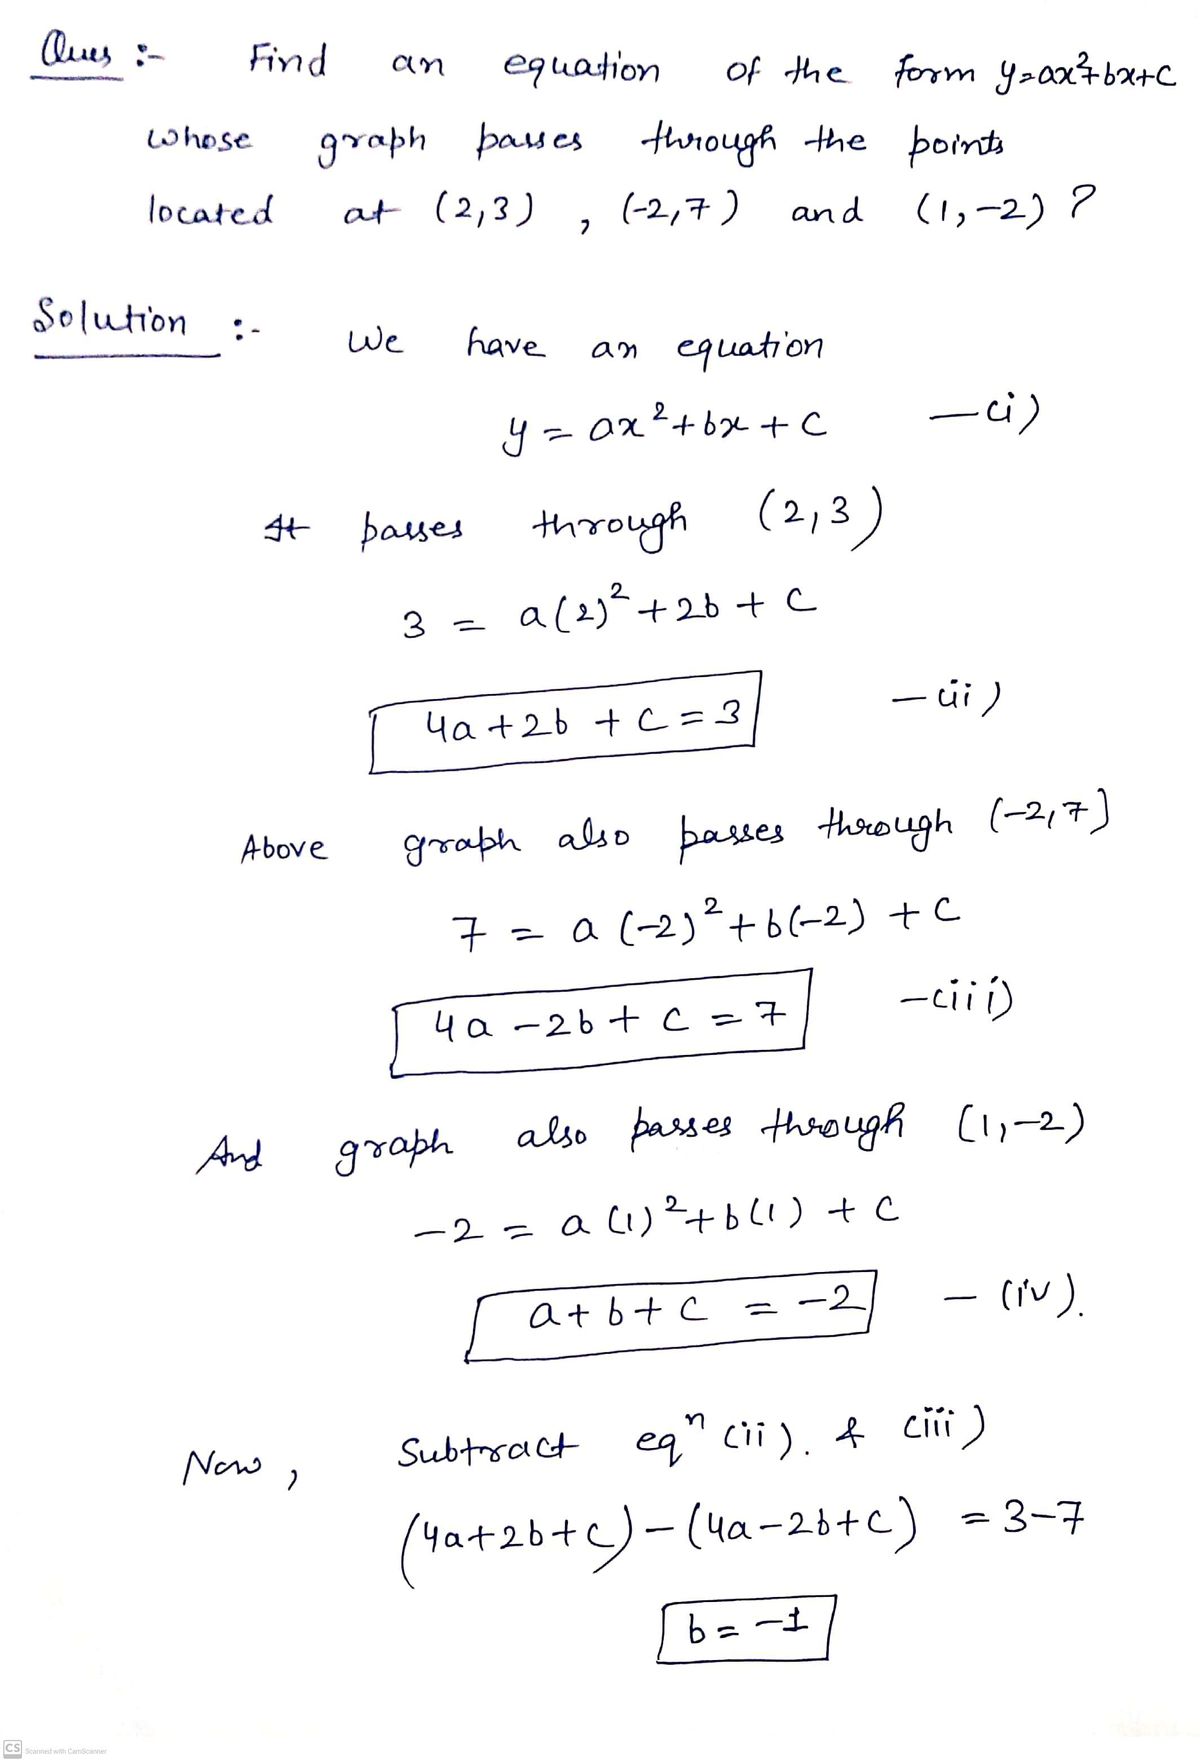 Ques :- Find an equation of the form y=ax²+bx+c
whose graph passes through the points
located at (2,3) , (-2,7) and (1,-2) ?
Solution :- We have an equation
y = ax²+bx+c —(i)
It passes through (2,3)
3 = a(2)²+2b+c
4a+2b+c=3 —(ii)
Above graph also passes through (-2,7)
7 = a(-2)²+b(-2)+c
4a-2b+c=7 —(iii)
And graph also passes through (1,-2)
-2 = a(1)²+b(1)+c
a+b+c = -2 — (iv).
Now, Subtract eqⁿ (ii). & (iii)
(4a+2b+c)-(4a-2b+c) = 3-7
b=-1
CS Scanned with CamScanner